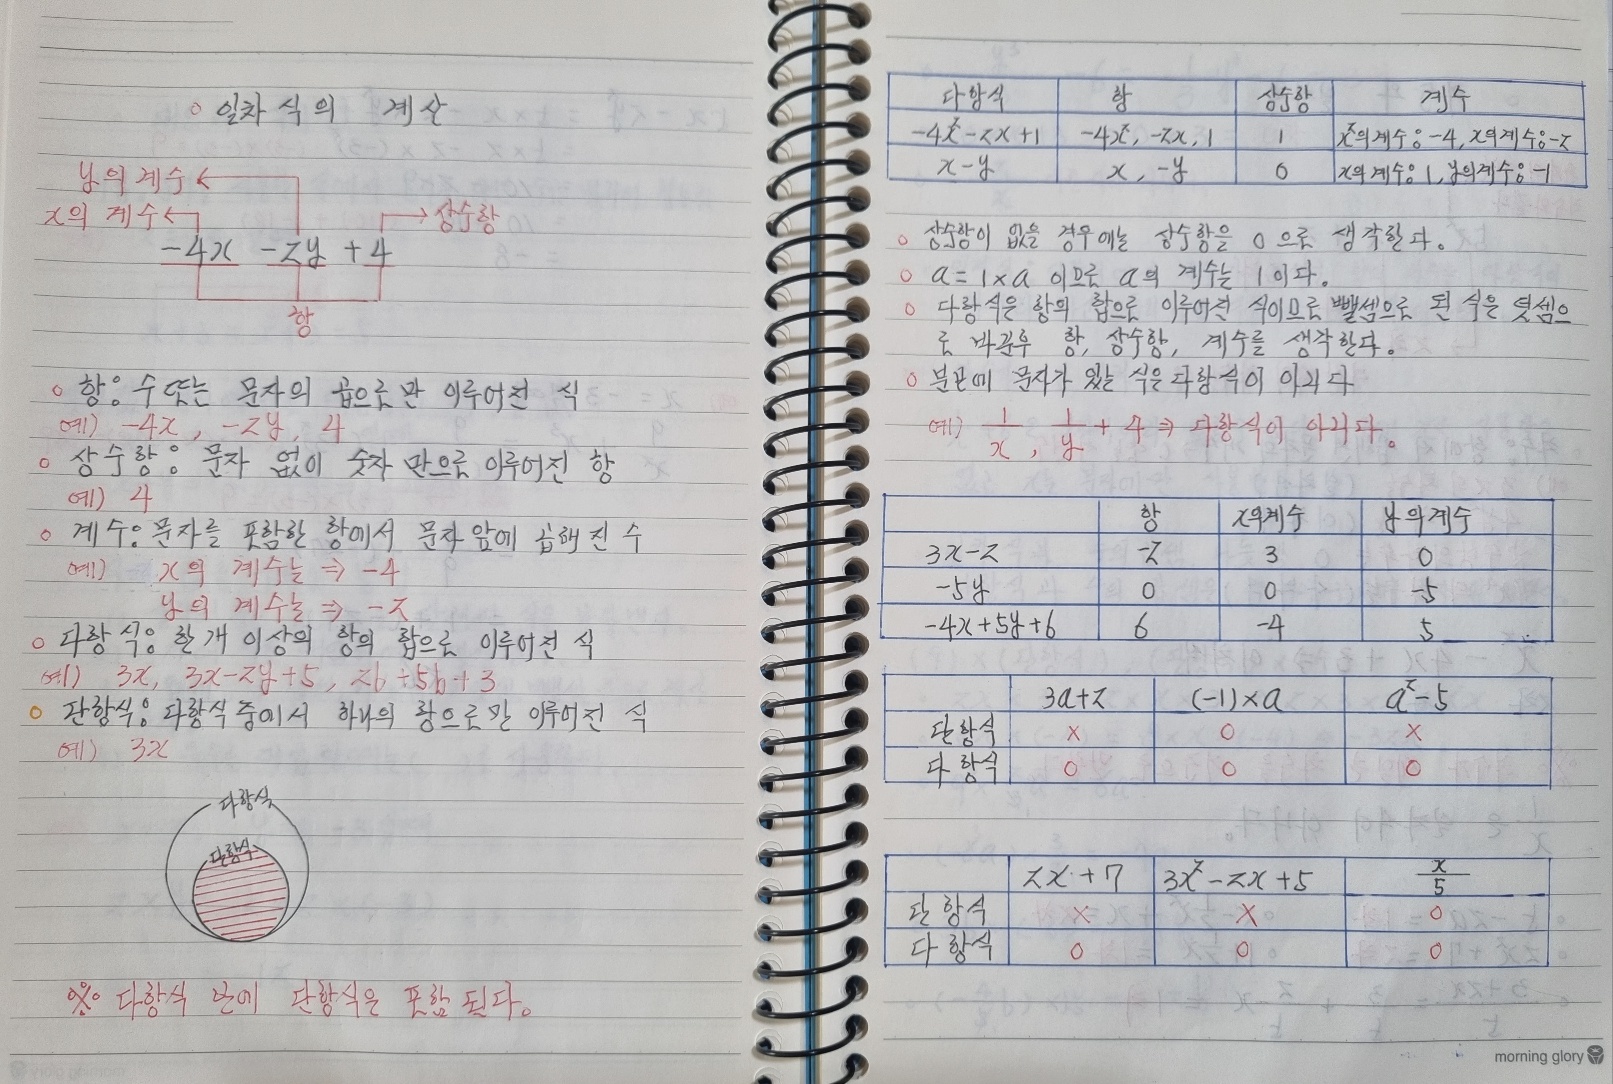 ○ 일차식의 계산
y의 계수
x의 계수
상수항
-4x -2y +4
항
○ 항: 수 또는 문자의 곱으로만 이루어진 식
예) -4x, -2y, 4
○ 상수항: 문자 없이 숫자 만으로 이루어진 항
예) 4
○ 계수: 문자를 포함한 항에서 문자 앞에 곱해진 수
예) x의 계수는 ⇒ -4
y의 계수는 ⇒ -2
○ 다항식: 한 개 이상의 항의 합으로 이루어진 식
예) 3x, 3x-2y+5, 2b+5b+3
○ 단항식: 다항식 중에서 하나의 항으로만 이루어진 식
예) 3x
다항식
단항식
※ 다항식 안에 단항식은 포함 된다.
다항식 항 상수항 계수
-4x²-2x+1 -4x², -2x, 1 1 x²의계수: -4, x의계수: -2
x-y x, -y 0 x의계수: 1, y의계수: -1
○ 상수항이 없을 경우에는 상수항을 0 으로 생각한다.
○ a=1×a 이므로 a의 계수는 1이다.
○ 다항식은 항의 합으로 이루어진 식이므로 뺄셈으로 된 식은 덧셈으
로 바꾼후 항, 상수항, 계수를 생각한다.
○ 분모에 문자가 있는 식은 다항식이 아니다
예) 1/x, 1/y + 4 ⇒ 다항식이 아니다.
항 x의계수 y의계수
3x-2 -2 3 0
-5y 0 0 -5
-4x+5y+6 6 -4 5
3a+2 (-1)×a a²-5
단항식 × ○ ×
다항식 ○ ○ ○
2x+7 3x²-2x+5 x/5
단항식 × × ○
다항식 ○ ○ ○
morning glory